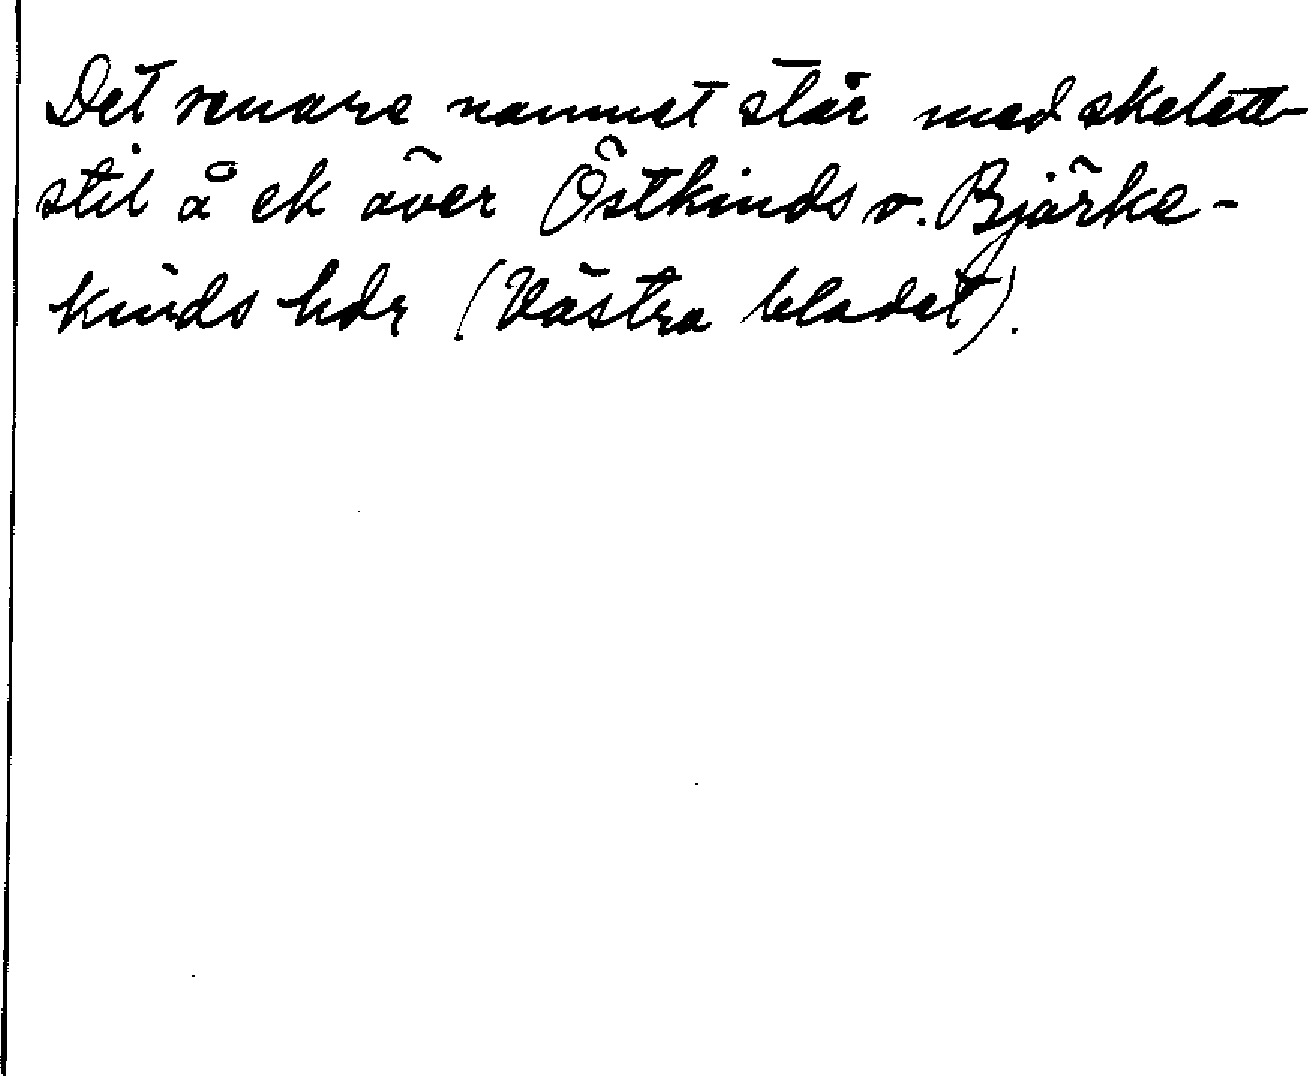 Det senare namnet står med skelett-
stil å ek över Östkinds o. Björke-
kinds hdr (Västra bladet).